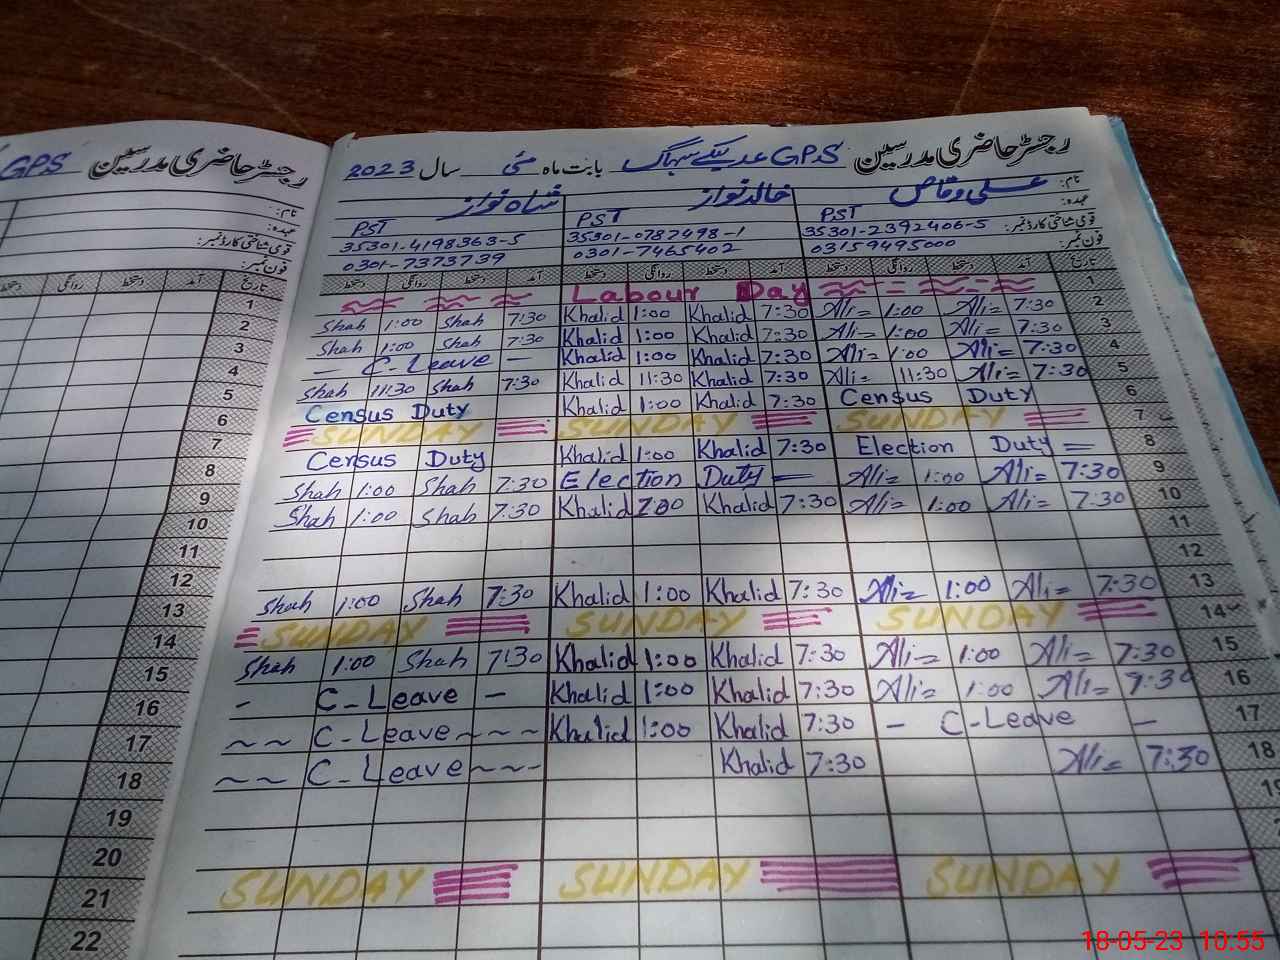 GPS رجسٹر حاضری مدرسین
نام:
عہدہ:
قومی شناختی کارڈ نمبر:
فون نمبر:
تاریخ آمد دستخط روانگی دستخط
1
2
3
4
5
6
7
8
9
10
11
12
13
14
15
16
17
18
19
20
21
22
رجسٹر حاضری مدرسین GPS بابت ماہ مئی سال 2023
نام: علی وقاص خالد نواز شاہ نواز
عہدہ: PST PST PST
قومی شناختی کارڈ نمبر: 35301-2392406-5 35301-0787498-1 35301-4198363-5
فون نمبر: 03159495000 0301-7465402 0301-7373739
تاریخ آمد دستخط روانگی دستخط آمد دستخط روانگی دستخط آمد دستخط روانگی دستخط
Labour Day 1
Shah 1:00 Shah 7:30 Khalid 1:00 Khalid 7:30 Ali= 1:00 Ali= 7:30 2
Shah 1:00 Shah 7:30 Khalid 1:00 Khalid 7:30 Ali= 1:00 Ali= 7:30 3
— C-Leave — Khalid 1:00 Khalid 7:30 Ali= 1:00 Ali= 7:30 4
Shah 11:30 Shah 7:30 Khalid 11:30 Khalid 7:30 Ali= 11:30 Ali= 7:30 5
Census Duty Khalid 1:00 Khalid 7:30 Census Duty 6
SUNDAY SUNDAY SUNDAY 7
Census Duty Khalid 1:00 Khalid 7:30 Election Duty 8
Shah 1:00 Shah 7:30 Election Duty Ali= 1:00 Ali= 7:30 9
Shah 1:00 Shah 7:30 Khalid Khalid 7:30 Ali= 1:00 Ali= 7:30 10
11
12
Shah 1:00 Shah 7:30 Khalid 1:00 Khalid 7:30 Ali= 1:00 Ali= 7:30 13
SUNDAY SUNDAY SUNDAY 14
Shah 1:00 Shah 7:30 Khalid 1:00 Khalid 7:30 Ali= 1:00 Ali= 7:30 15
- C-Leave - Khalid 1:00 Khalid 7:30 Ali= 1:00 Ali= 7:30 16
~~ C-Leave ~~~ Khalid 1:00 Khalid 7:30 - C-Leave - 17
~~ C-Leave ~~~ Khalid 7:30 Ali= 7:30 18
SUNDAY SUNDAY SUNDAY
18-05-23 10:55